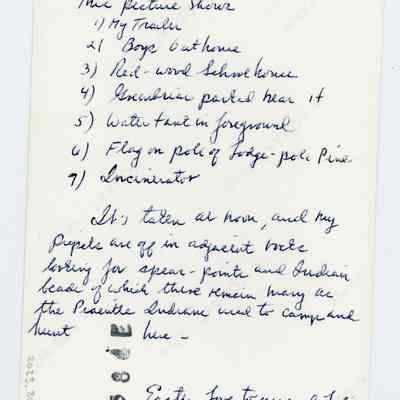 This picture shows
1) My Trailer
2) Boys outhouse
3) Red-wood Schoolhouse
4) Greenbriar parked near it
5) Water tank in foreground
6) Flag on pole of Lodge-pole Pine
7) Incinerator
It's taken at noon, and my
pupils are off in adjacent rocks
looking for spear-points and Indian
beads of which there remain many as
the Indians used to camp and
hunt here -
2023.